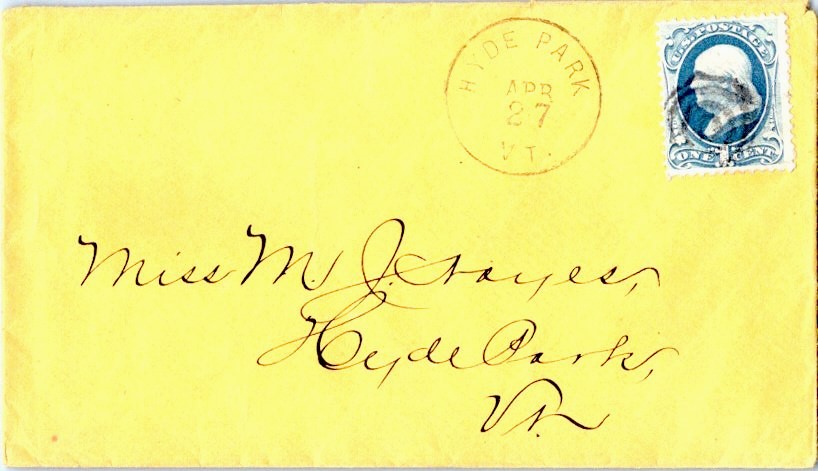 HYDE PARK
APR
27
VT.
U.S. POSTAGE
ONE 1 CENT
Miss M. J. Hayes,
Hyde Park,
Vt.